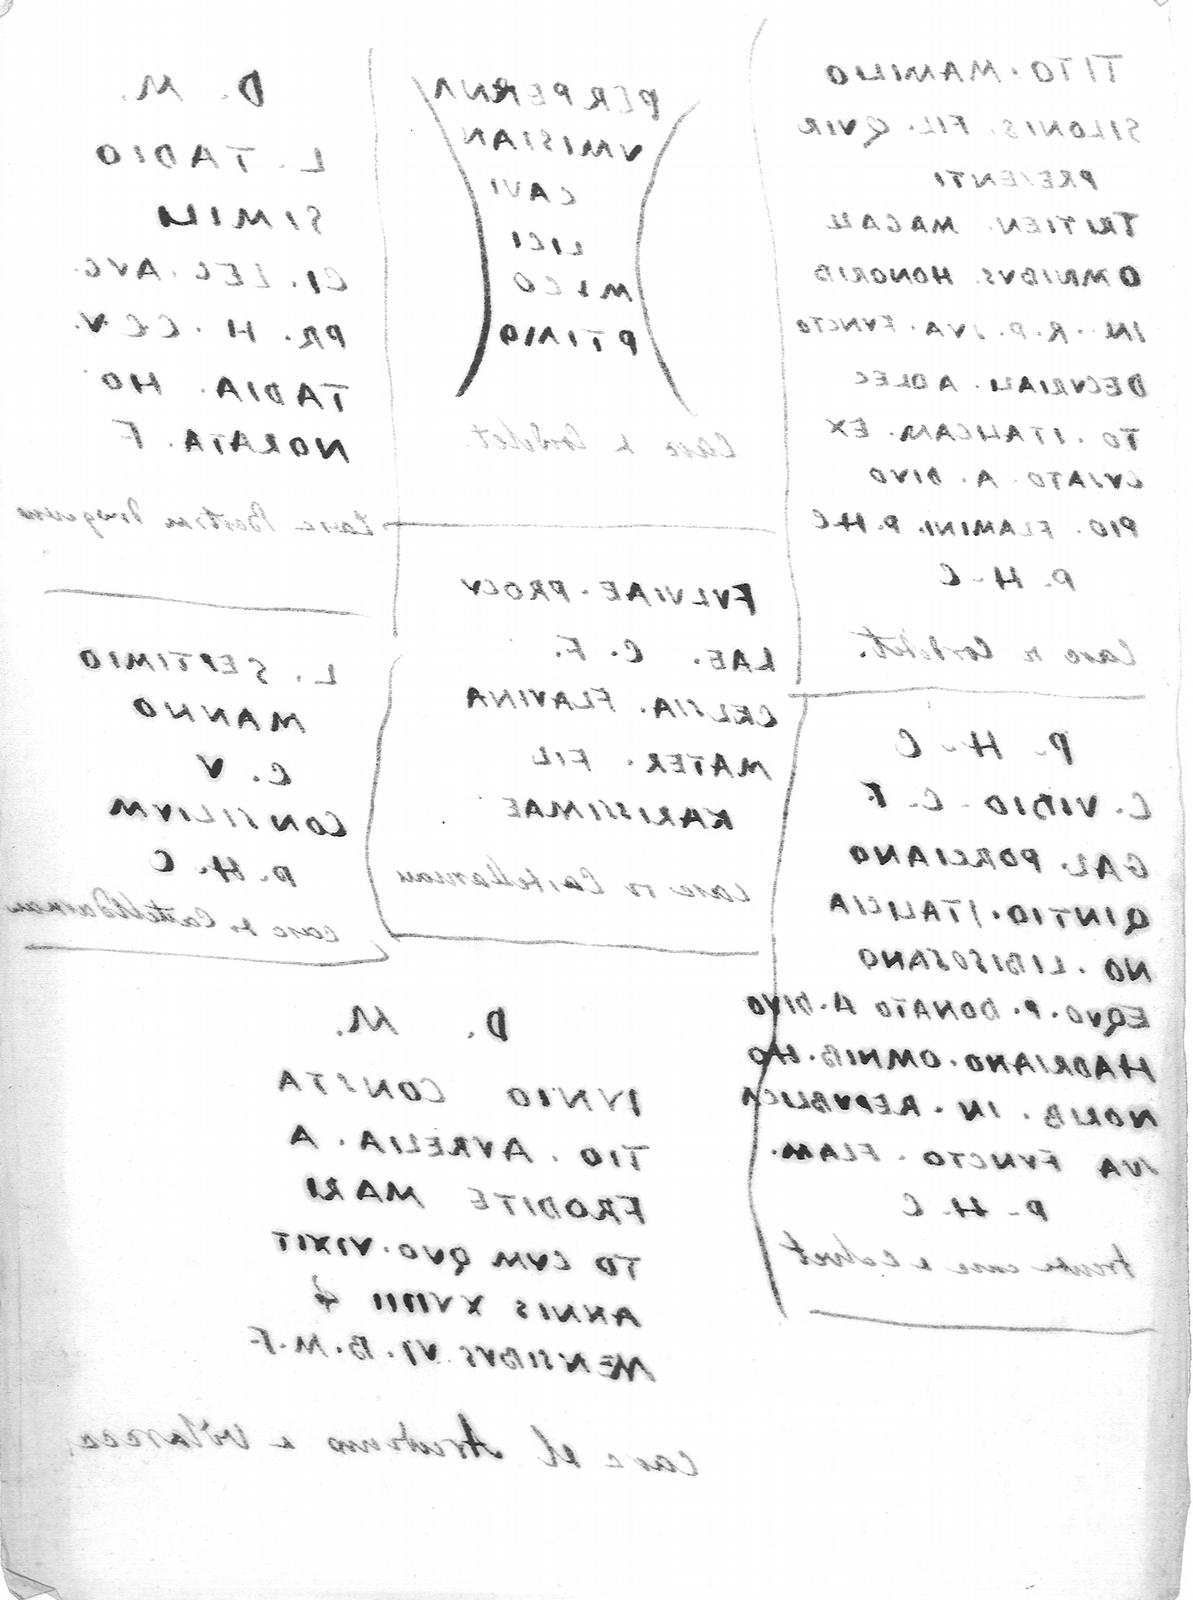 TITO · MAMILIO
SILONIS · FIL · QVIR
PRESENTI
TRITIEN · MAGALL
OMNIBVS · HONORIB
IN · R · P · SVA · FVNCTO
DECVRIALI · ADLEC
TO · ITALICAM · EX
CVSATO · A · DIVO
PIO · FLAMINI · P · H · C
P · H · C
P · H · C
C. VIBIO · C · F.
GAL · PORCIANO
QINTIO · ITALICIA
NO · LIBISOSANO
EQVO · P · DONATO A · DIVO
HADRIANO · OMNIB · HO
NORIB · IN · REPVBLICA
SVA FVNCTO · FLAM.
P · H · C
PERPERNA
VMISIAN
CAVI
LICI
MLCO
PTIMO
FVLVIAE · PROCV
LAE · C · F.
CELSIA · FLAVINA
MATER · FIL
KARISSIMAE
D. M.
L · TADIO
SIMILI
CI · LEG · AVG.
PR · H · C C V.
TADIA · HO
NORATA · F
L. SEPTIMIO
MANNO
C. V
CONSILIVM
P · H · C
D. M.
IVNIO CONSTA
TIO · AVRELIA · A
FRODITE MARI
TO CVM QVO · VIXIT
ANNIS XVIIII
MENSIBVS VI · B · M · F
casa el